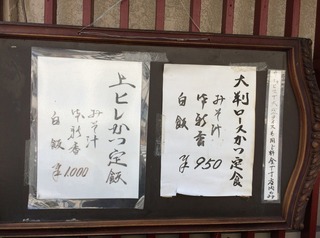 大判ロースかつ定食
みそ汁
御新香
白飯
¥950
上ヒレかつ定飯
みそ汁
御新香
白飯
¥1,000